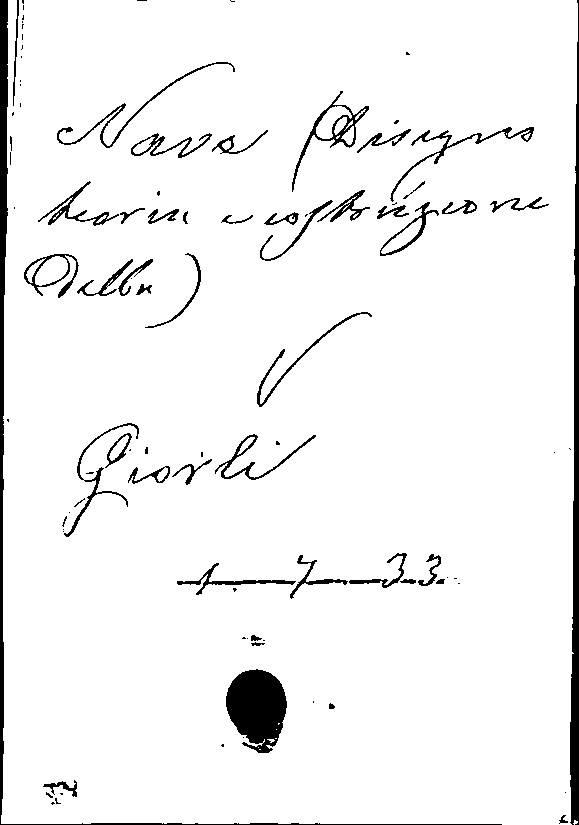 Nave (Disegno
teoria e costruzione
della)
V
Giorli
1 7 33